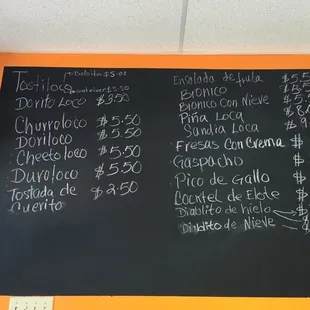 Tostilocos Bolsita $5.00
$5.50
Dorito Loco $3.50
Churroloco $5.50
Doriloco $5.50
Cheeto loco $5.50
Duroloco $5.50
Tostada de $2.50
Cuerito
Ensalada de fruta $5.5
Bionico
Bionico Con Nieve
Piña Loca
Sandia Loca
Fresas Con Crema $
Gaspacho $
Pico de Gallo $
Cocktel de Elote $
Diablito de hielo $
Diablito de Nieve $